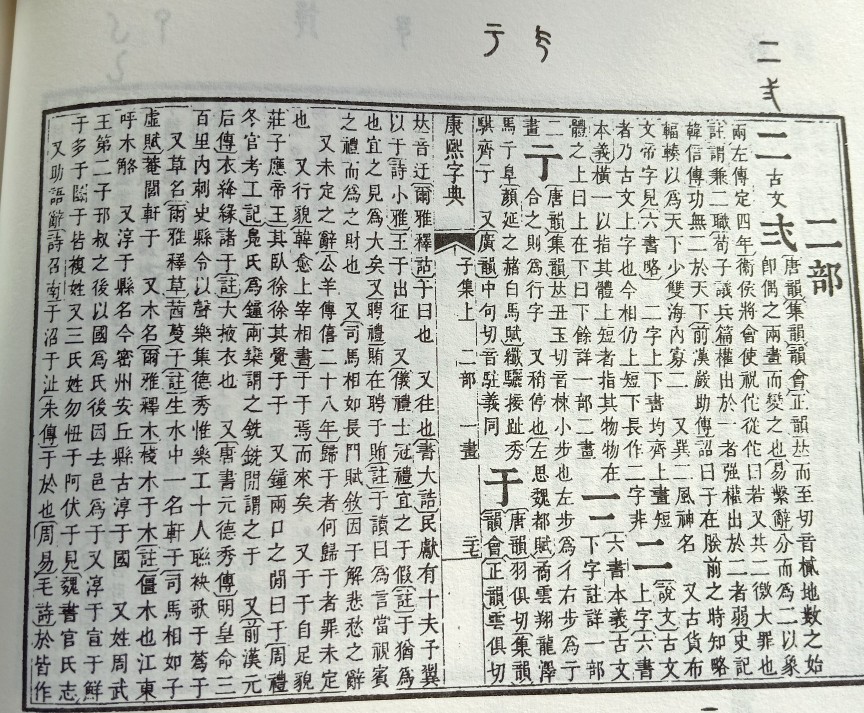 二 弍
亍 于
二部
二 古文 弍
唐韻集韻韻會正韻𠀤而至切音樲地數之始
卽偶之兩畫而變之也易繫辭分而爲二以象
兩左傳定四年衞侯將會使祝佗從佗曰若又共二徼大罪也
註謂兼二職荀子議兵篇權出於一者强權出於二者弱史記
韓信傳功無二於天下前漢嚴助傳詔曰于在朕前之時知略
輻輳以爲天下少雙海內寡二 又巽二風神名 又古貨布
文帝字見六書略 二字上下畫均齊上畫短 二 說文古文
者乃古文上字也今相仍上短下長作二字非 上字六書
本義橫一以指其體上短者指其物物在 𠄟 六書本義古文
體之上曰上在下曰下餘詳一部二畫 下字註詳一部
二畫 亍 唐韻集韻𠀤丑玉切音楝小步也左步爲彳右步爲亍
合之則爲行字 又稍停也左思魏都賦矞雲翔龍澤
馬亍阜顏延之赭白馬賦纖驪接趾秀 于 唐韻羽俱切集韻
騏齊亍 又廣韻中句切音駐義同 韻會正韻雲俱切
康熙字典 子集上 二部 一畫
𠀤音迂爾雅釋詁于曰也 又往也書大誥民獻有十夫予翼
以于詩小雅王于出征 又儀禮士冠禮宜之于假註于猶爲
也宜之見爲大矣又聘禮賄在聘于賄註于讀曰爲言當視賓
之禮而爲之財也 又司馬相如長門賦敘因于解悲愁之辭
又未定之辭公羊傳僖二十八年歸于者何歸于者罪未定
也 又行貌韓愈上宰相書于于焉而來矣 又于于自足貌
莊子應帝王其臥徐徐其覺于于 又鐘兩口之閒曰于周禮
冬官考工記鳧氏爲鐘兩欒謂之銑銑閒謂之于 又前漢元
后傳衣絳緣諸于註大掖衣也 又唐書元德秀傳明皇命三
百里內刺史縣令以聲樂集德秀惟樂工十人聯袂歌于蔿于
又草名爾雅釋草茜蔓于註生水中一名軒于司馬相如子
虛賦菴閭軒于 又木名爾雅釋木棧木于木註僵木也江東
呼木觡 又淳于縣名今密州安丘縣古淳于國 又姓周武
王第二子邘叔之後以國爲氏後因去邑爲于又淳于宣于鮮
于多于闞于皆複姓又三氏姓勿忸于阿伏于見魏書官氏志
又助語辭詩召南于沼于沚朱傳于於也周易毛詩於皆作